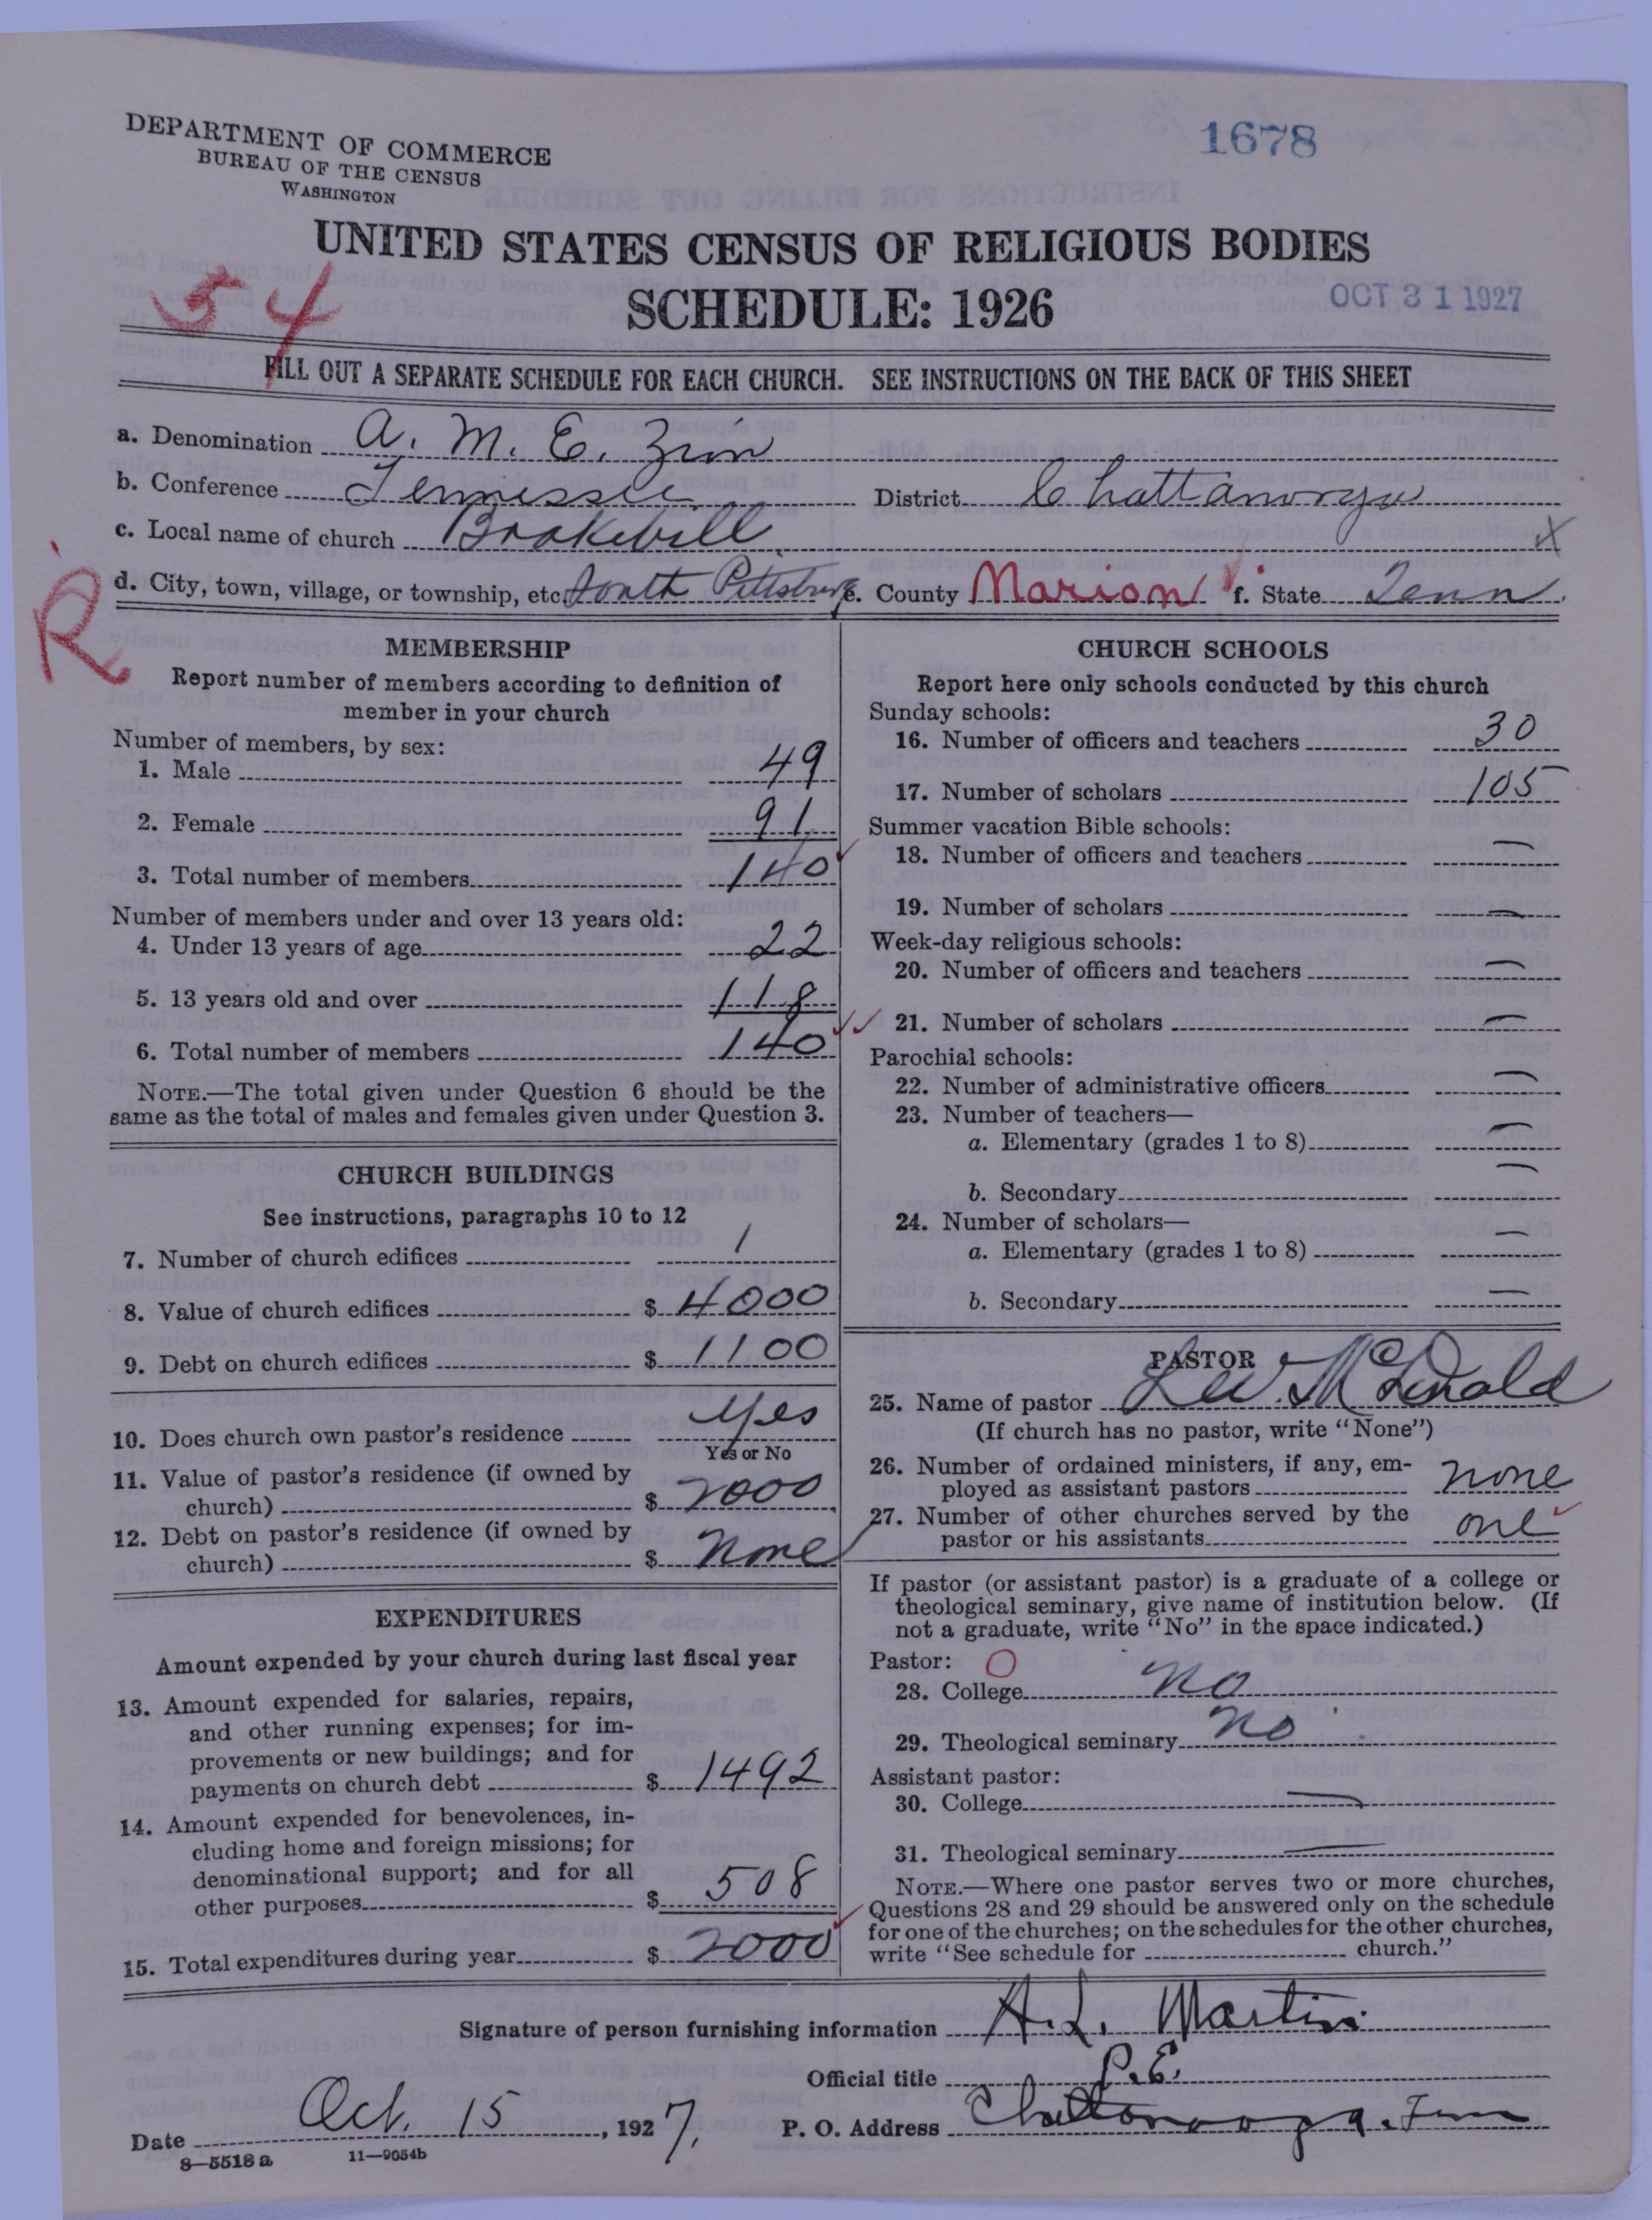 DEPARTMENT OF COMMERCE
BUREAU OF THE CENSUS
WASHINGTON
1678
UNITED STATES CENSUS OF RELIGIOUS BODIES
SCHEDULE: 1926
OCT 31 1927
54
FILL OUT A SEPARATE SCHEDULE FOR EACH CHURCH. SEE INSTRUCTIONS ON THE BACK OF THIS SHEET
a. Denomination A. M. E. Zion
b. Conference Tennessee District Chattanooga
c. Local name of church X
d. City, town, village, or township, etc. South Pittsburg e. County Marion f. State Tenn.
R
MEMBERSHIP
Report number of members according to definition of
member in your church
Number of members, by sex:
1. Male 49
2. Female 91
3. Total number of members 140
Number of members under and over 13 years old:
4. Under 13 years of age 22
5. 13 years old and over 118
6. Total number of members 140
NOTE.—The total given under Question 6 should be the
same as the total of males and females given under Question 3.
CHURCH BUILDINGS
See instructions, paragraphs 10 to 12
7. Number of church edifices 1
8. Value of church edifices $ 4000
9. Debt on church edifices $ 1100
10. Does church own pastor's residence Yes
Yes or No
11. Value of pastor's residence (if owned by
church) $ 2000
12. Debt on pastor's residence (if owned by
church) $ None
EXPENDITURES
Amount expended by your church during last fiscal year
13. Amount expended for salaries, repairs,
and other running expenses; for im-
provements or new buildings; and for
payments on church debt $ 1492
14. Amount expended for benevolences, in-
cluding home and foreign missions; for
denominational support; and for all
other purposes $ 508
15. Total expenditures during year $ 2000
CHURCH SCHOOLS
Report here only schools conducted by this church
Sunday schools:
16. Number of officers and teachers 30
17. Number of scholars 105
Summer vacation Bible schools:
18. Number of officers and teachers —
19. Number of scholars —
Week-day religious schools:
20. Number of officers and teachers —
21. Number of scholars —
Parochial schools:
22. Number of administrative officers —
23. Number of teachers—
a. Elementary (grades 1 to 8) —
b. Secondary —
24. Number of scholars—
a. Elementary (grades 1 to 8) —
b. Secondary —
PASTOR
25. Name of pastor McDonald
(If church has no pastor, write "None")
26. Number of ordained ministers, if any, em-
ployed as assistant pastors none
27. Number of other churches served by the
pastor or his assistants one
If pastor (or assistant pastor) is a graduate of a college or
theological seminary, give name of institution below. (If
not a graduate, write "No" in the space indicated.)
Pastor: O
28. College no
29. Theological seminary no
Assistant pastor:
30. College —
31. Theological seminary —
NOTE.—Where one pastor serves two or more churches,
Questions 28 and 29 should be answered only on the schedule
for one of the churches; on the schedules for the other churches,
write "See schedule for church."
Signature of person furnishing information A. L. Martin
Official title P.E.
Date Oct. 15, 1927. P. O. Address Chattanooga, Tenn
8—5518a 11—9054b